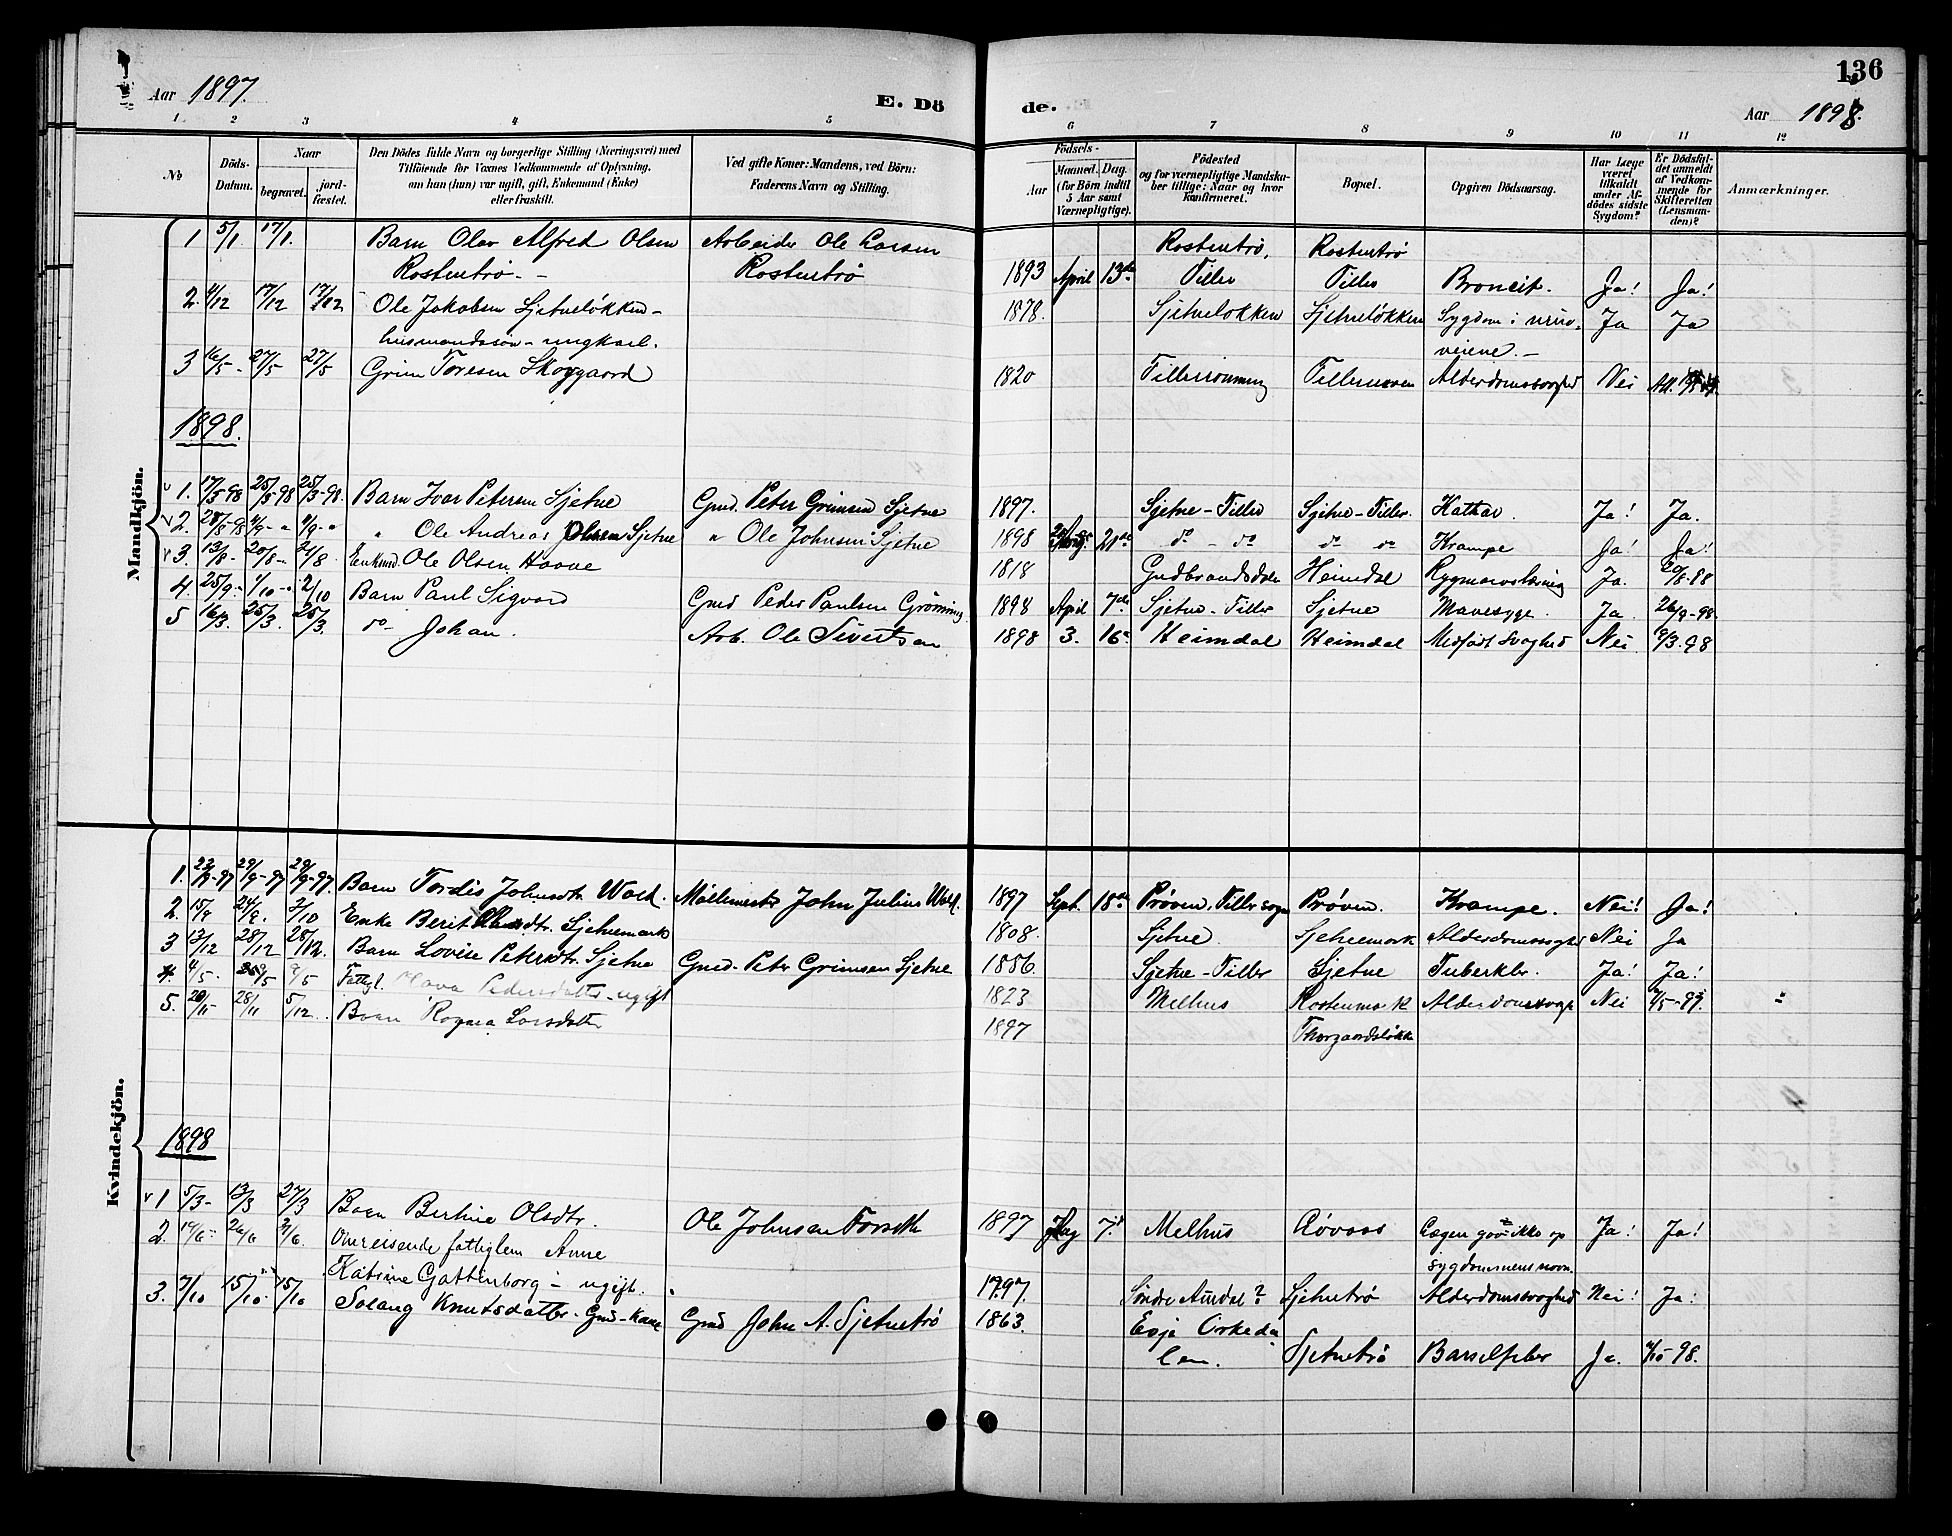 136
Aar 1897.
E. Dö
de.
Aar 1898.
1 2 3 4 5 6 7 8 9 10 11 12
No
Döds-Datum.
Naar
begravet.
jord-fæstet.
Den Dödes fulde Navn og borgerlige Stilling (Næringsvei) med
Tilföiende for Voxnes Vedkommende af Oplysning,
om han (hun) var ugift, gift, Enkemand (Enke)
eller fraskilt.
Ved gifte Koner: Mandens, ved Börn:
Faderens Navn og Stilling.
Födsels-
Aar
Maaned.
Dag.
(for Börn indtil
5 Aar samt
Værnepligtige).
Födested
og for værnepligtige Mandska-
ber tillige: Naar og hvor
konfirmeret.
Bopæl.
Opgiven Dödsaarsag.
Har Læge
været
tilkaldt
under Af-
dödes sidste
Sygdom?
Er Dödsfal-
det anmeldt
af Vedkom-
mende for
Skifteretten
(Lensman-
den)?
Anmærkninger.
Mandkjön.
1 5/1 17/1. Barn Olav Alfred Olsen Arbeider Ole Larsen Rostentrø, Rostentrø
Rostentrø. - Rostentrø 1893 April 13de Tiller Tiller Broncit. Ja! Ja!
2. 4/12 17/12 17/12 Ole Jakobsen Sjetneløkken - 1878. Sjetneløkken Sjetneløkken Sygdom i urin- Ja Ja
husmandssøn - ungkarl. veiene. -
3 16/5- 27/5 27/5 Grim Toresen Skoggaard 1820 Tillerrønning Alderdomssvaghed Nei
1898.
1. 17/3-98 25/3-98 25/3-98. Barn Ivar Petersen Sjetne Gmd. Peter Grimsen Sjetne 1897. Sjetne-Tiller Sjetne-Tiller. Kathar Ja! Ja.
2. " Ole Andreas Olsen Sjetne " Ole Johnsen Sjetne 1898 do - do do do Krampe Ja! Ja!
3. 13/8- 20/8- 21/8 Enkmd. Ole Olsen Haave 1818 Gudbrandsdalen Heimdal Rygmarvstæring Ja.
4 25/9- 1/10- 2/10 Barn Paul Sigvard Gmd Peder Paulsen Grønning 1898 April 7de Sjetne-Tiller Sjetne Mavesyge. Ja. 26/9-98.
5 16/3. 25/3. 25/3. do- Johan. Arb. Ole Sivertsen 1898 3. 16. Heimdal Heimdal Medfødt Svaghed Nei 9/3-98
Kvindekjön.
1. 29/9-97 29/9-97 Barn Tordis Johnsdtr. Wold. Møllemester John Julius Wold. 1897 Sept. 18de Prøven, Tiller sogn Prøven. Krampe. Nei! Ja!
2. 15/9 24/9. 2/10 Enke Berit Sjetnemark 1808. Sjetne. Sjetnemark Alderdomssvaghed Nei Ja
3 13/12 28/12 28/12. Barn Lovise Petersdtr. Sjetne Gmd. Peter Grimsen Sjetne 1886. Sjetne-Tiller Sjetne Tuberkler. Ja! Ja!
4. 4/5- 9/5 Fattigl. Olava Pedersdatter - ugift 1823 Melhus Rostenmark Alderdomssvagh Nei
5. 20/11 28/11 5/12. Barn Ragna Larsdatter 1897 Thorgaardsløkk
1898
1 5/3- 13/3 27/3 Barn Berthine Olsdtr. Ole Johnsen Forseth 1897 7. Melhus Røvaas Lægen gav ikke op Ja! Ja!
sygdommens navn.
2. 19/6- 26/6 Omreisende fattiglem Anne
Katrine Gattenborg - ugift. 1797. Søndre Aurdal? Sjetnetrø Alderdomssvaghed Nei! Ja!
3. 7/10 15/10. 15/10 Solaug Knutsdatter. Gmd-Kone Gmd John A. Sjetnetrø 1863. Evje Orkeda
len. Sjetnetrø Barselfeber Ja. 9/10-98.